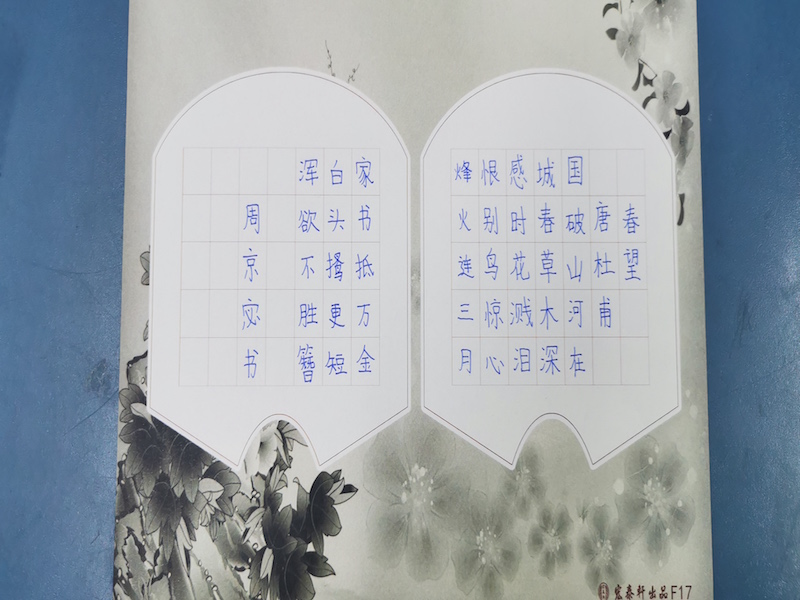 春望
唐杜甫
国破山河在
城春草木深
感时花溅泪
恨别鸟惊心
烽火连三月
家书抵万金
白头搔更短
浑欲不胜簪
周京宓书
宏泰轩出品F17